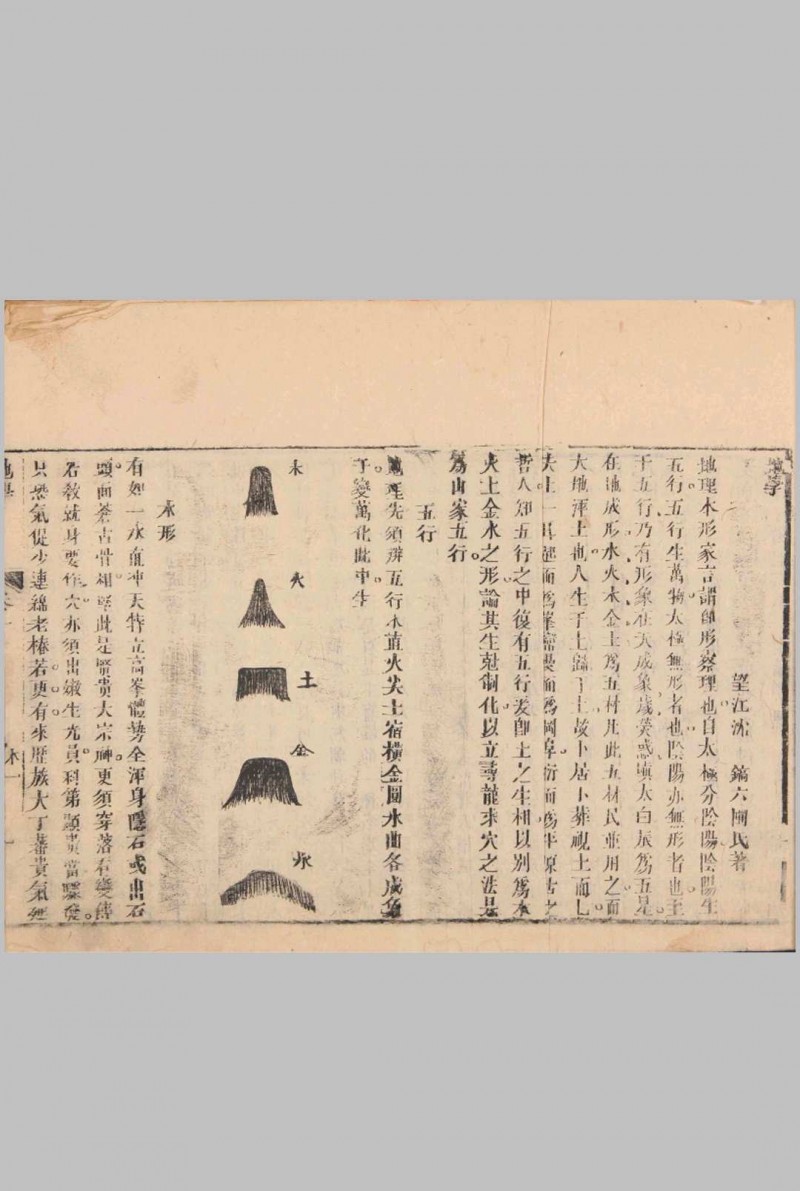 地學
望江沈 鎬六圃氏著
地理木形家言謂即形察理也自太極分陰陽陰陽生
五行五行生萬物太極無形者也陰陽亦無形者也至
于五行乃有形象在天成象歲熒惑填太白辰為五星
在地成形水火木金土為五材凡此五材民並用之而
大地渾土也人生于土歸于土故卜居卜葬視土而已
夫土一耳起而為峯巒漫而為岡阜衍而為平原古之
哲人知五行之中復有五行爰即土之生相以別為木
火土金水之形論其生尅制化以立尋龍求穴之法是
為山家五行
五行
地理先須辨五行木直火尖土宿橫金圓水曲各成象
千變萬化此中生
木
火
土
金
水
木形
有如一木直冲天特立高峯體勢全渾身隱石或出石
頭面蒼古骨粗堅此是賢貴大宗廟更須穿落看變傳
若教就身要作穴亦須出嫩生尤員科第顯貴富驟發
只恐氣促少連綿老椿若更有來歷族大丁蕃貴氣
地學
卷一